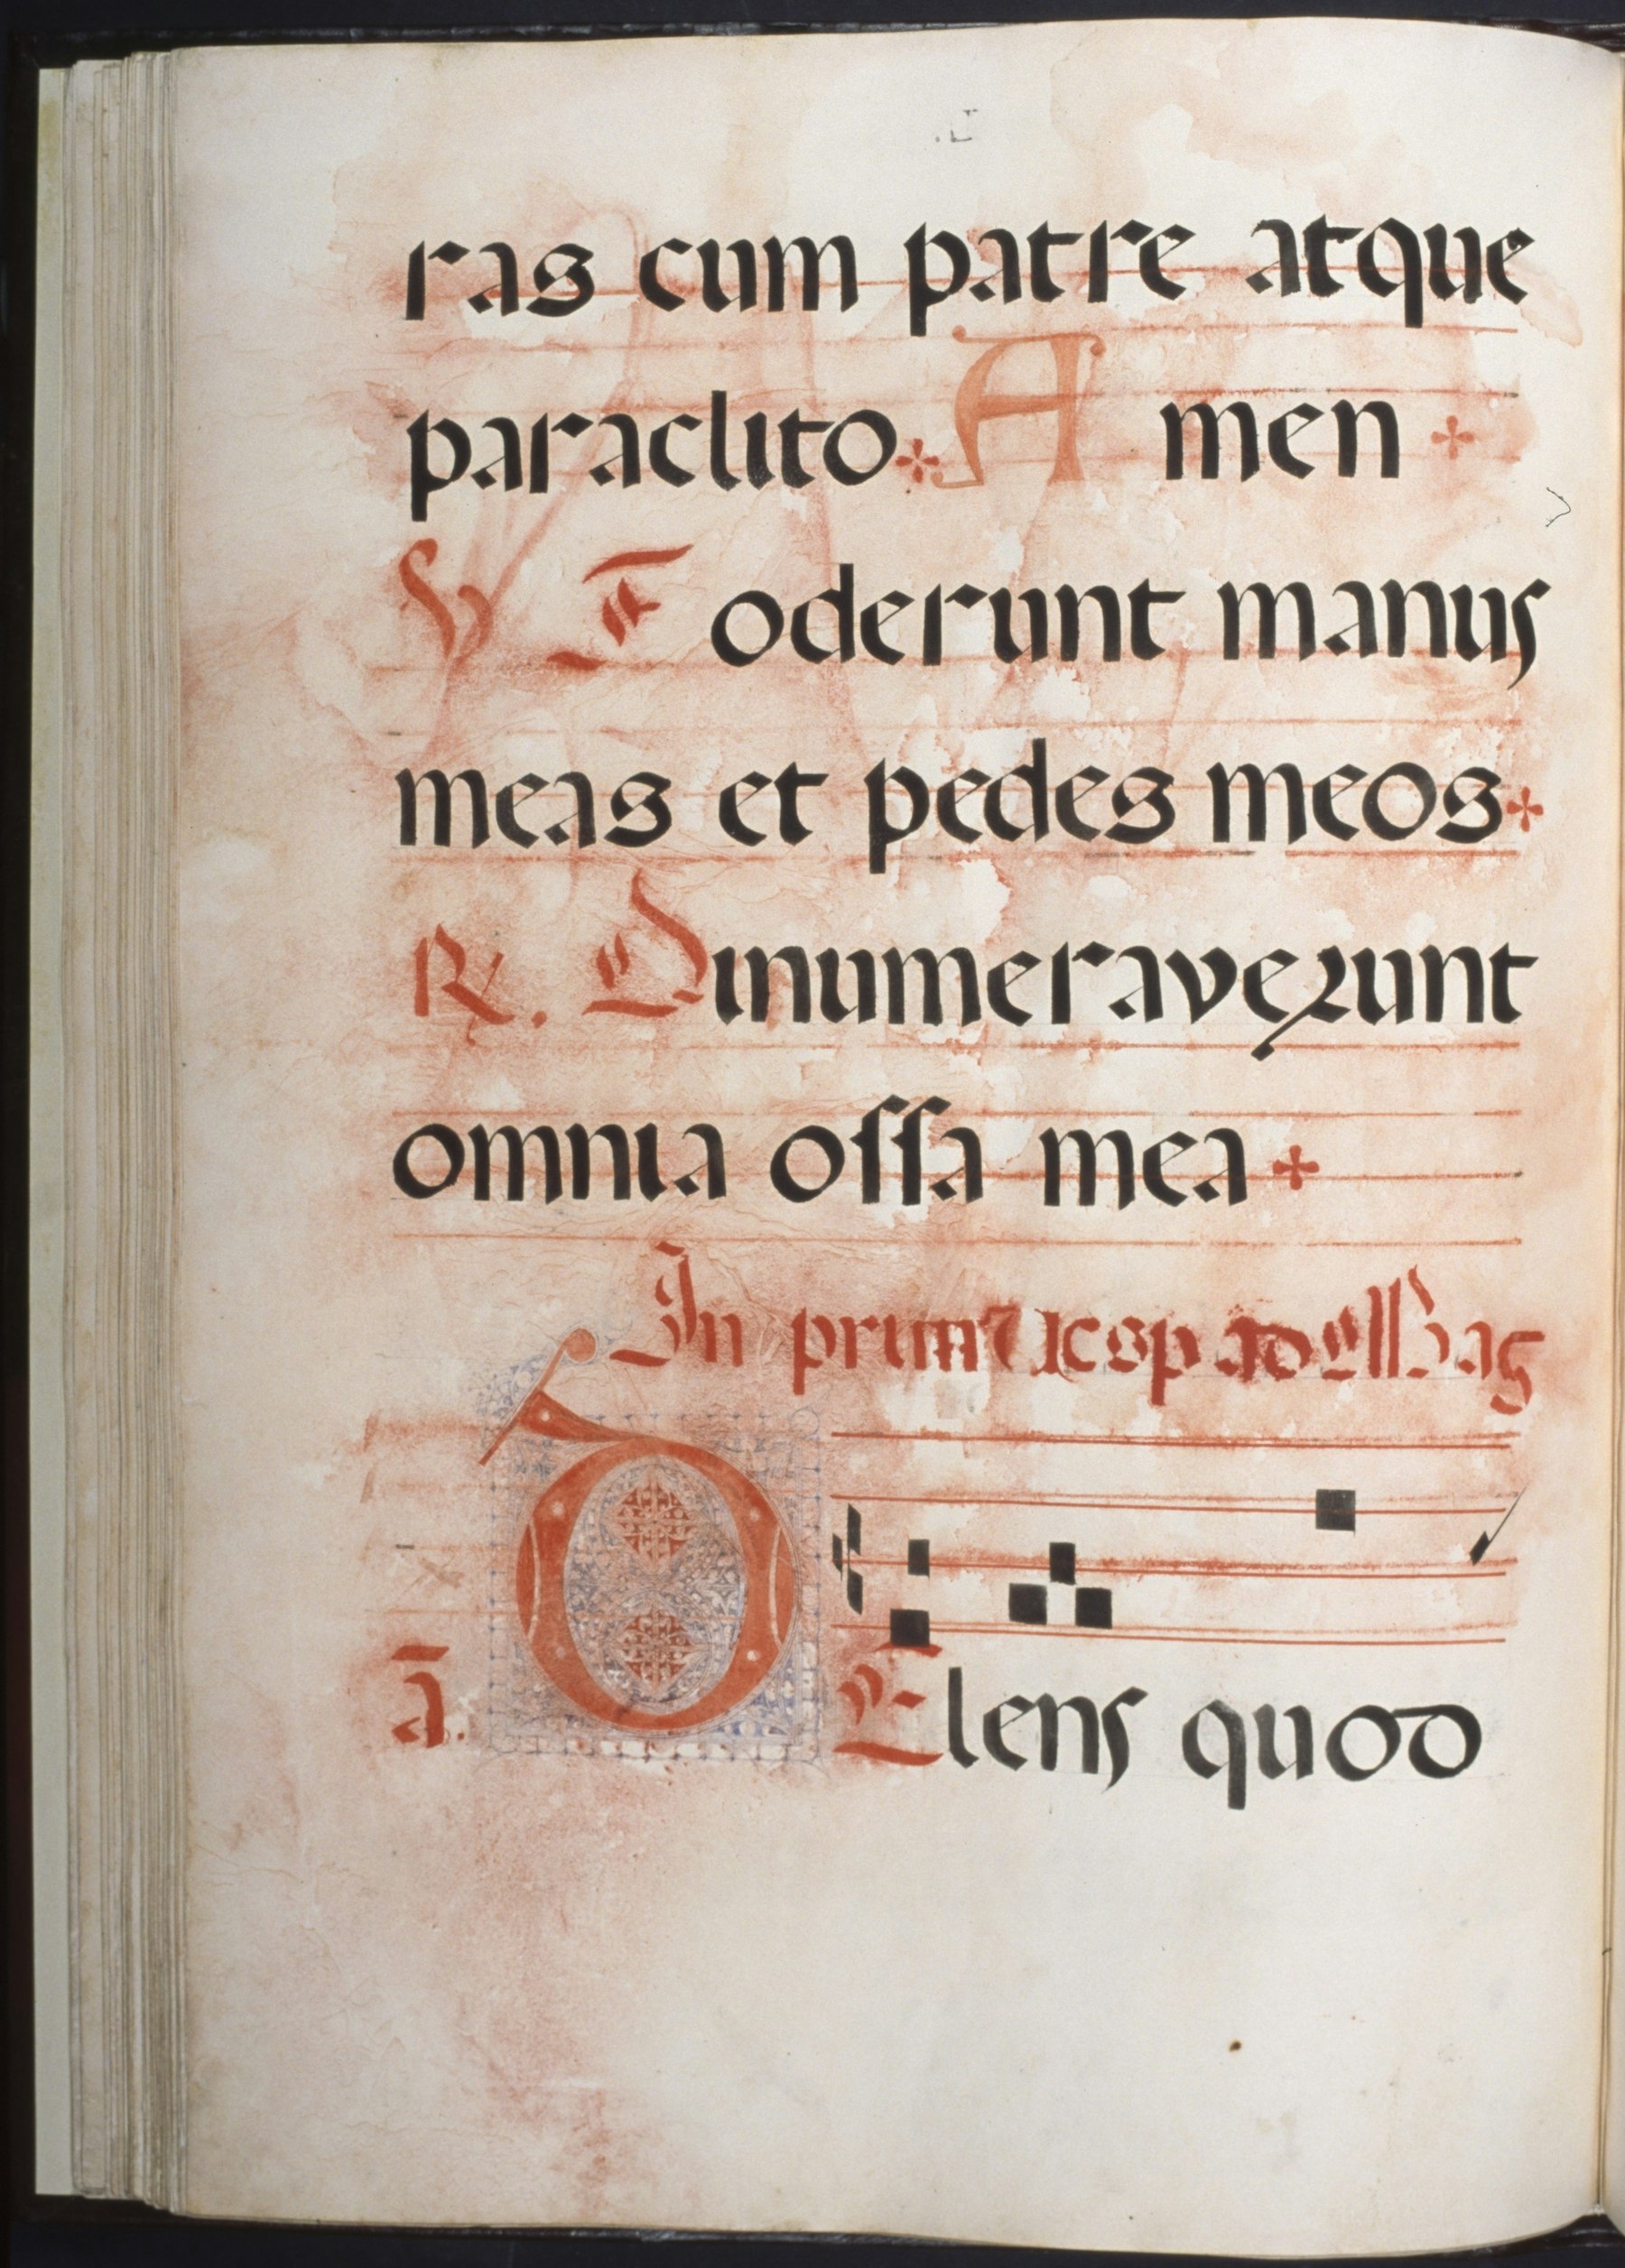 ras cum patre atque
paraclito A men
V Foderunt manus
meas et pedes meos
R. Dinumeraverunt
omnia ossa mea
In primis vesp ad Mag
a. Volens quod